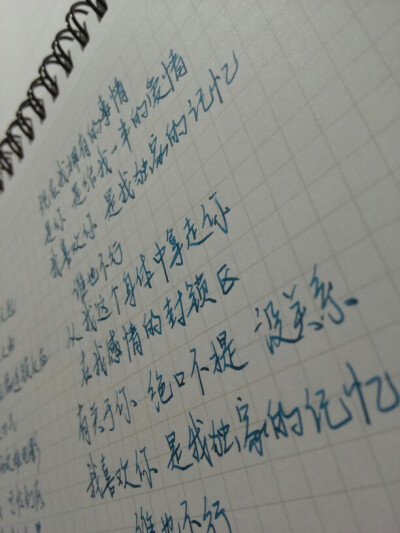 现在我拥有的事情
是你 是给我一半的爱情
我喜欢你 是我独家的记忆
谁也不行
从我这个身体中拿走你
在我感情的封锁区
有关于你 绝口不提 没关系
我喜欢你 是我独家的记忆
谁也不行